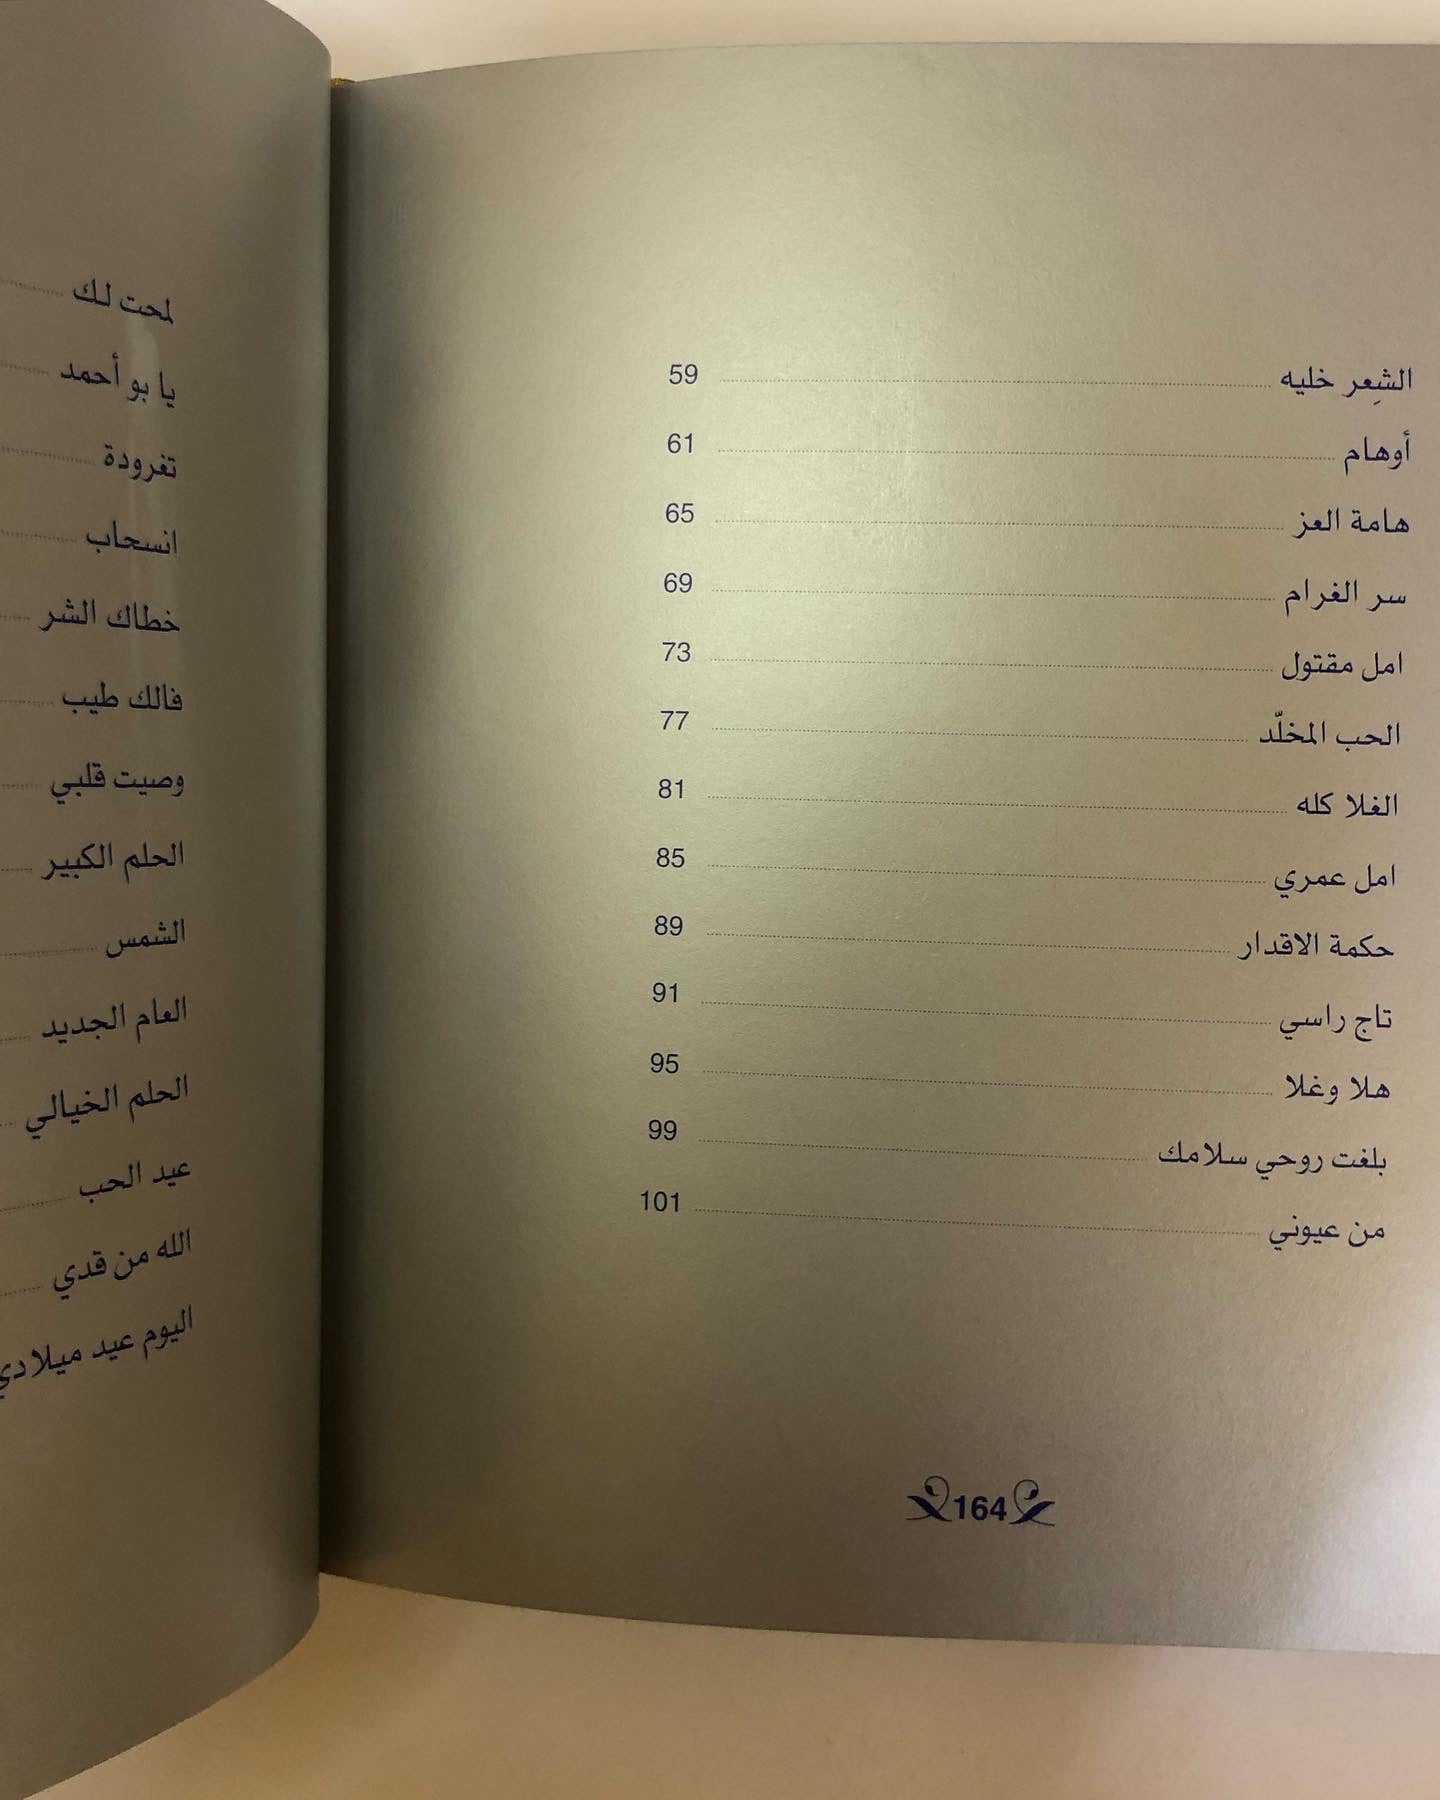 الشِعر خليه 59
أوهام 61
هامة العز 65
سر الغرام 69
امل مقتول 73
الحب المخلّد 77
الغلا كله 81
امل عمري 85
حكمة الاقدار 89
تاج راسي 91
هلا وغلا 95
بلغت روحي سلامك 99
من عيوني 101
164
لمحت لك
يا بو أحمد
تغرودة
انسحاب
خطاك الشر
فالك طيب
وصيت قلبي
الحلم الكبير
الشمس
العام الجديد
الحلم الخيالي
عيد الحب
الله من قدي
اليوم عيد ميلادي